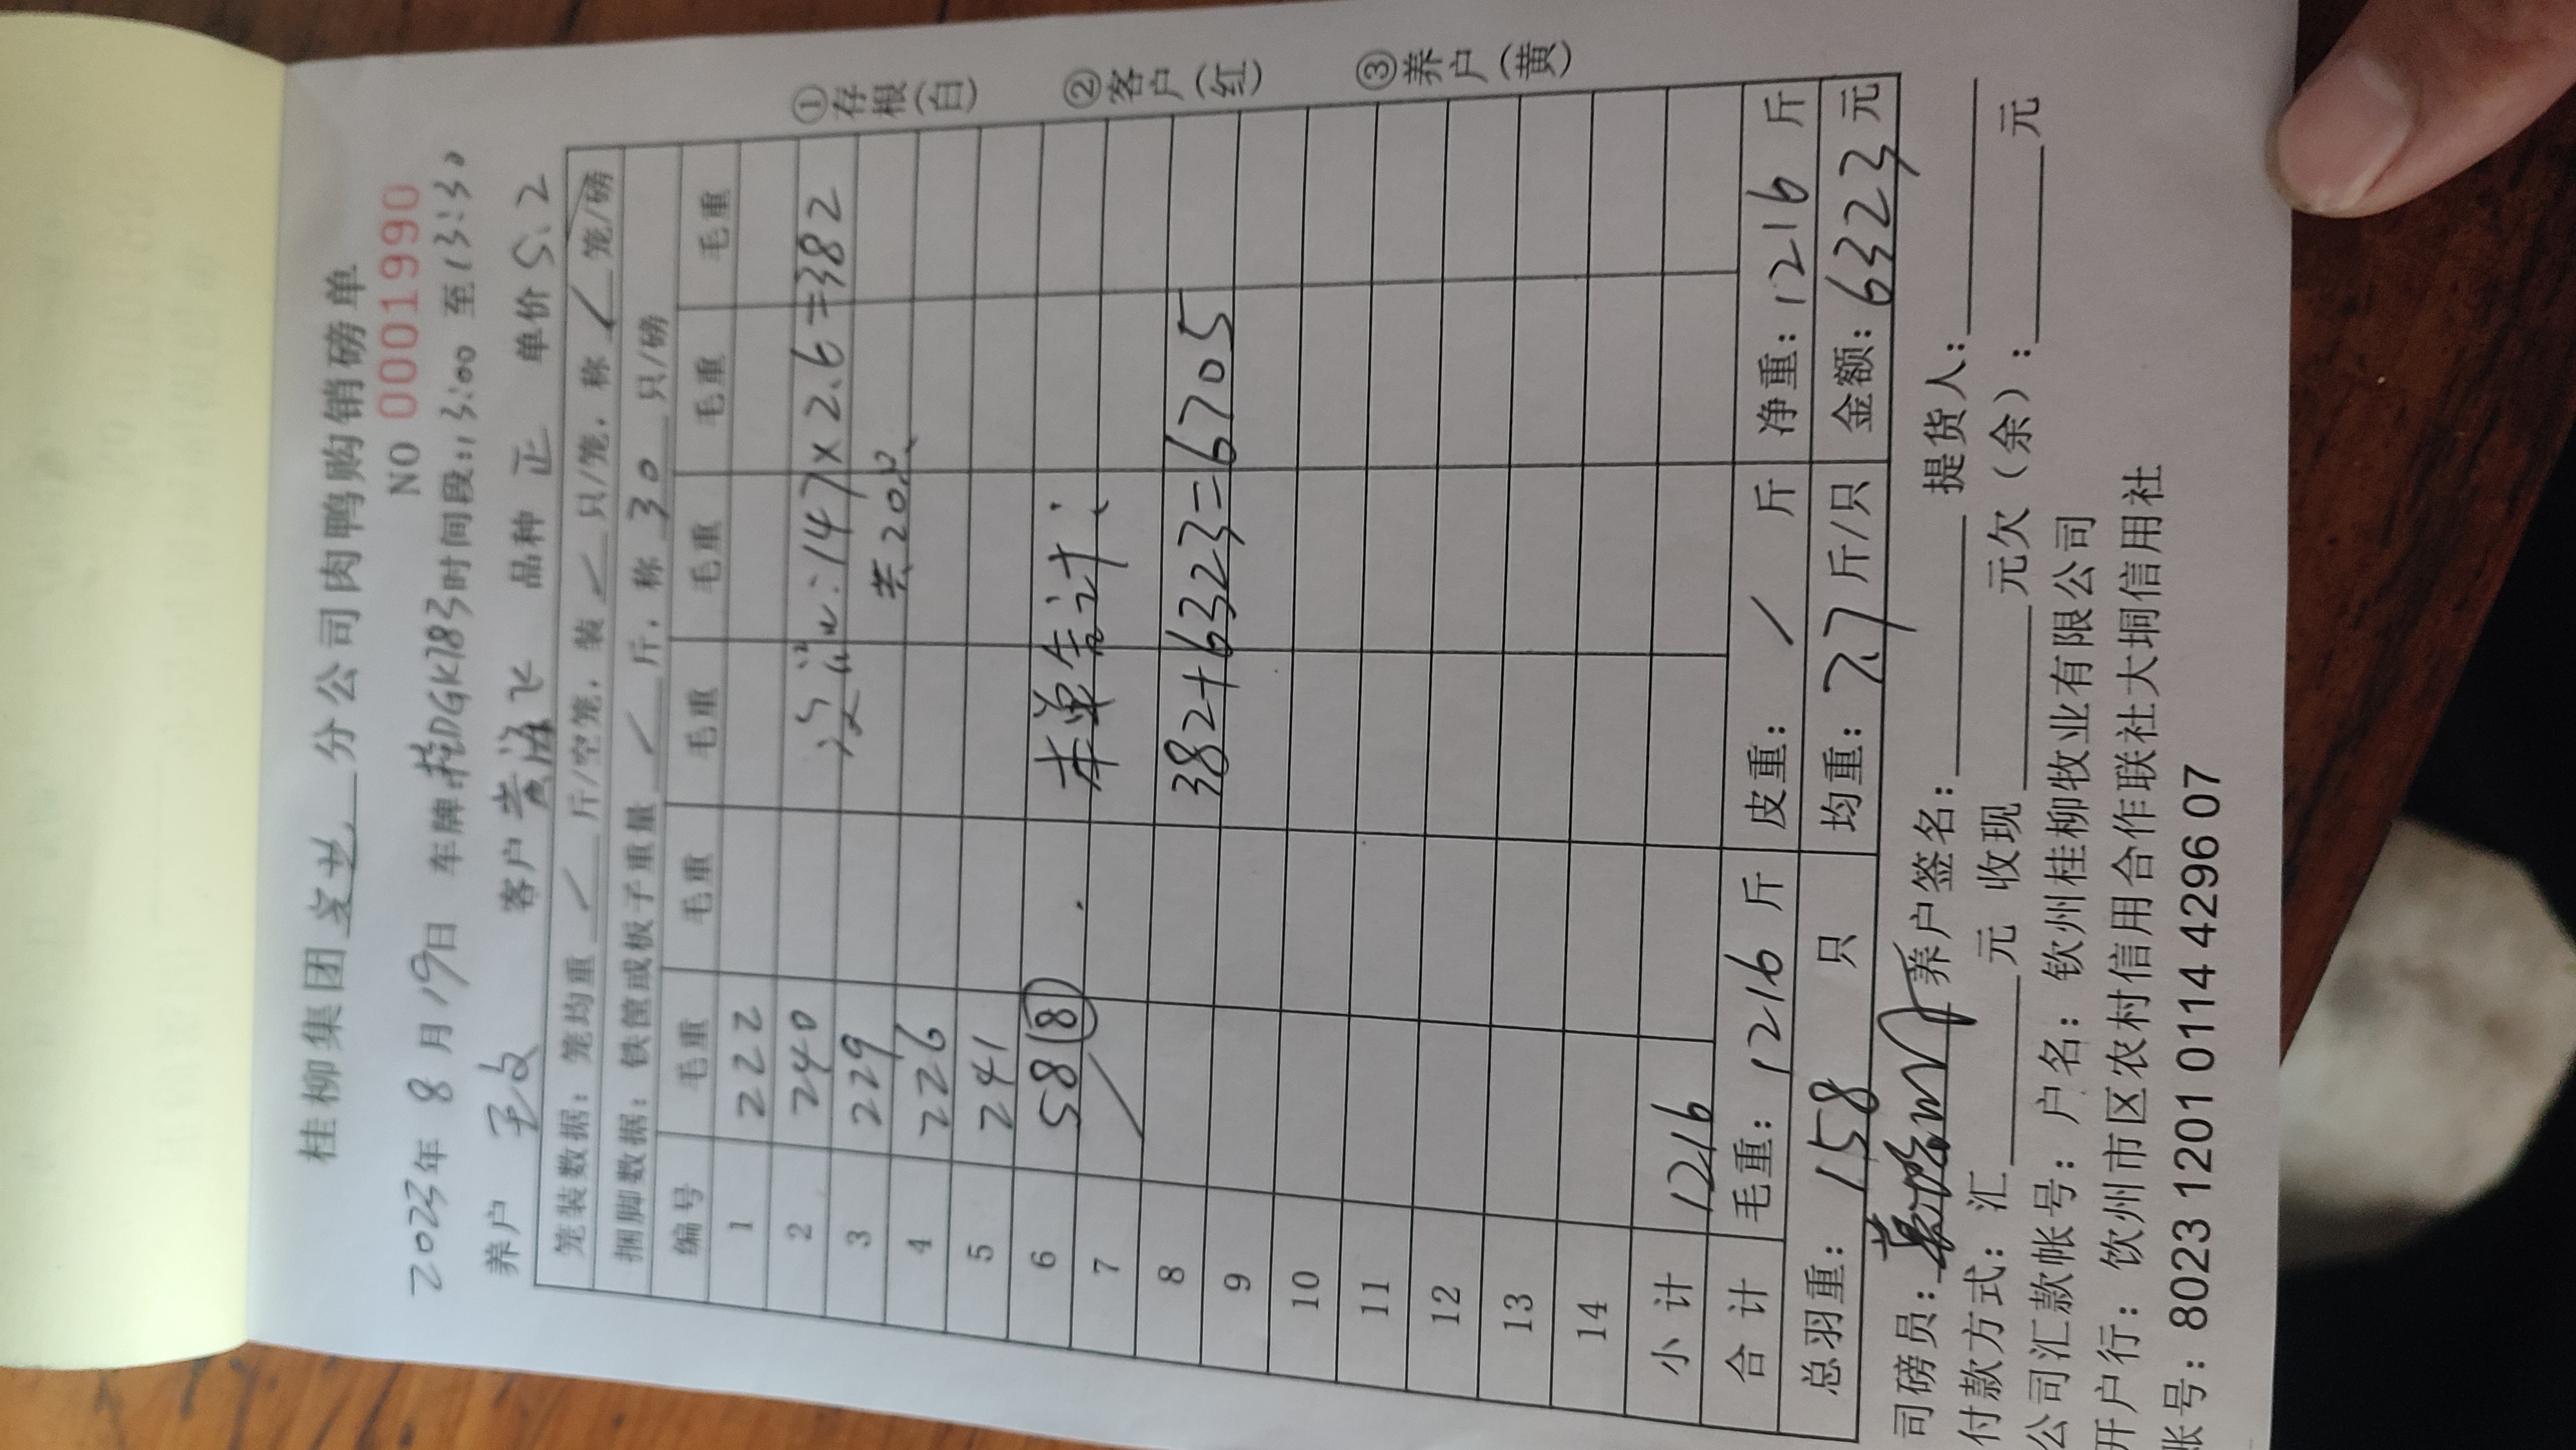 桂柳集团 分公司肉鸭购销磅单
NO 0001990
2023年 8 月 19日 车牌:桂DGK183时间段:13:00 至13:30
养户 客户 黄海飞 品种 正 单价 5.2
笼装数据：笼均重 / 斤/空笼，装 / 只/笼，称 / 笼/磅
捆脚数据：铁筐或板子重量 / 斤，称 30 只/磅
编号 毛重 毛重 毛重 毛重 毛重 毛重
1 222
2 240 :147×2.6=382
3 229 共20只
4 226
5 241
6 58(8) 本单合计:
7
8 382+6323=6705
9
10
11
12
13
14
小计 1216
合计 毛重：1216 斤 皮重： / 斤 净重：1216 斤
总羽重：158 只 均重：7.7 斤/只 金额：6323 元
司磅员： 养户签名： 提货人：
付款方式：汇 元 收现 元欠（余）： 元
公司汇款帐号：户名：钦州桂柳牧业有限公司
开户行：钦州市区农村信用合作联社大垌信用社
帐号：8023 1201 0114 4296 07
①存根(白) ②客户(红) ③养户(黄)